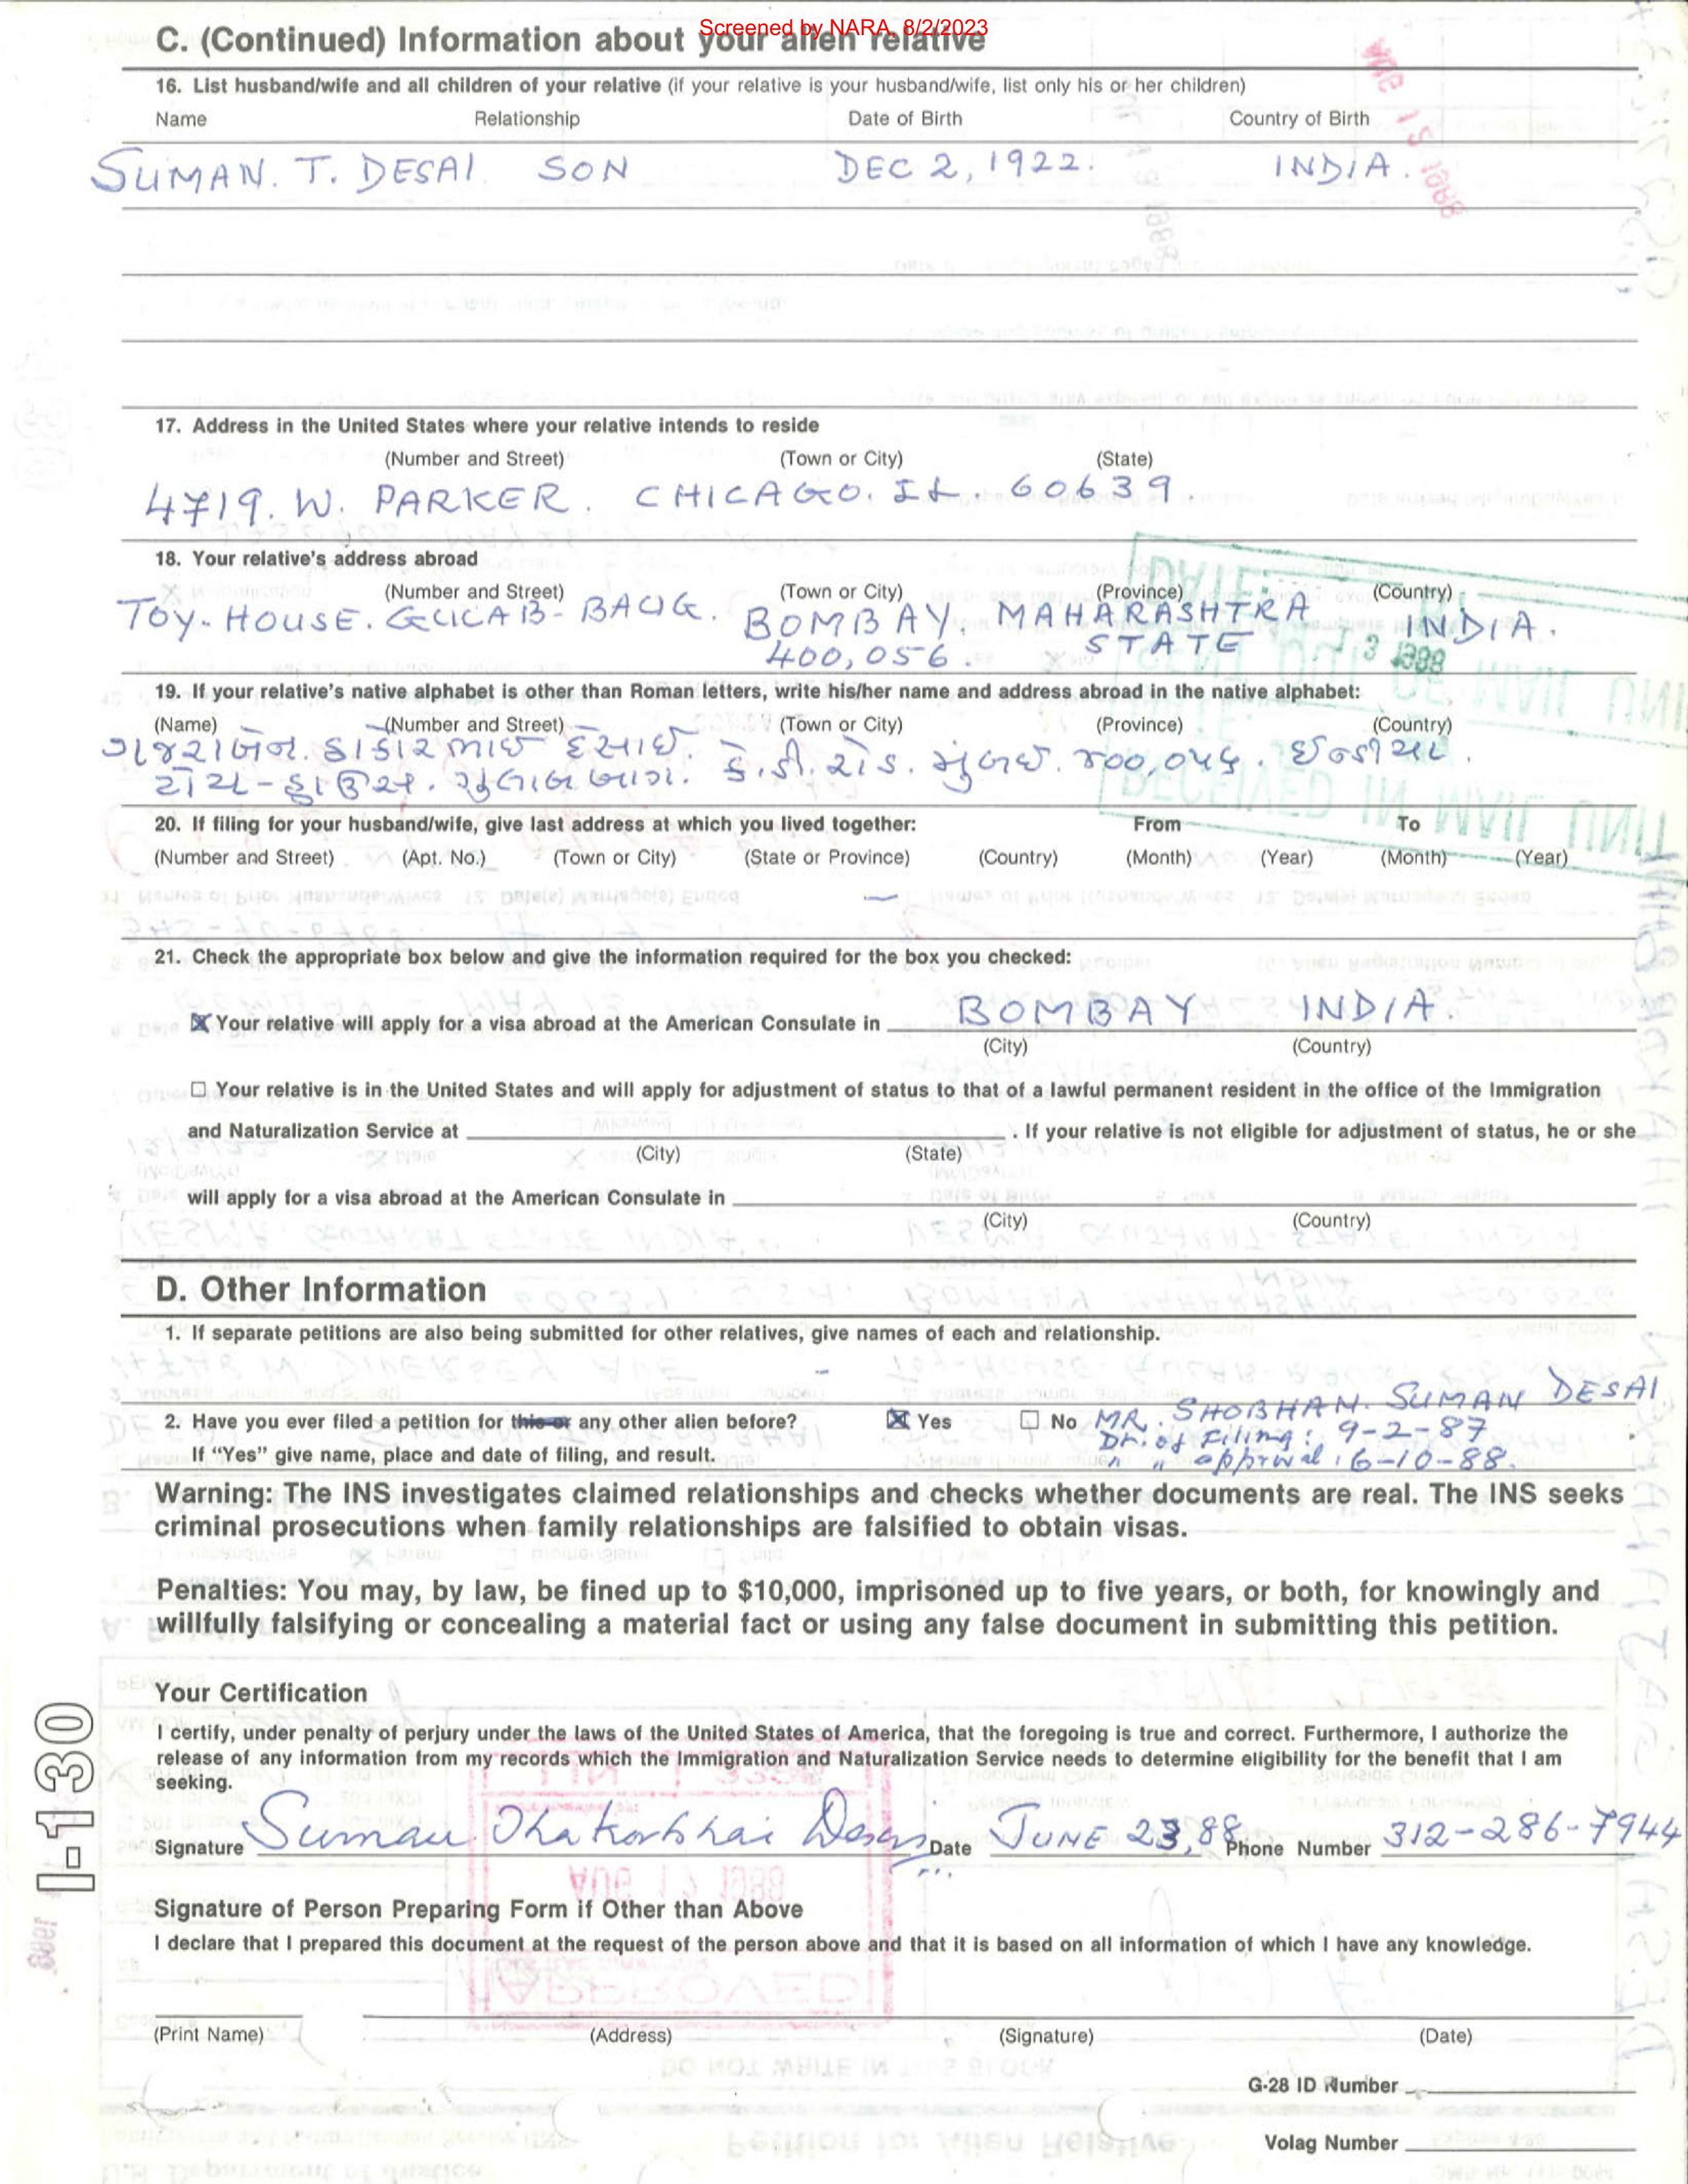 Screened by NARA, 8/2/2023
C. (Continued) Information about your alien relative
16. List husband/wife and all children of your relative (if your relative is your husband/wife, list only his or her children)
Name Relationship Date of Birth Country of Birth
SUMAN. T. DESAI SON DEC 2, 1922. INDIA.
17. Address in the United States where your relative intends to reside
(Number and Street) (Town or City) (State)
4719. W. PARKER. CHICAGO. IL. 60639
18. Your relative's address abroad
(Number and Street) (Town or City) (Province) (Country)
TOY-HOUSE. GULAB-BAUG. BOMBAY. MAHARASHTRA INDIA.
400,056. STATE
19. If your relative's native alphabet is other than Roman letters, write his/her name and address abroad in the native alphabet:
(Name) (Number and Street) (Town or City) (Province) (Country)
ગજરાબેન. ઠાકોરભાઇ દેસાઇ. કે.ડી. રોડ. મુંબઇ. ૪૦૦,૦૫૬. ઇન્ડીયા.
ટોય-હાઉસ. ગુલાબ બાગ.
20. If filing for your husband/wife, give last address at which you lived together: From To
(Number and Street) (Apt. No.) (Town or City) (State or Province) (Country) (Month) (Year) (Month) (Year)
21. Check the appropriate box below and give the information required for the box you checked:
Your relative will apply for a visa abroad at the American Consulate in BOMBAY INDIA.
(City) (Country)
Your relative is in the United States and will apply for adjustment of status to that of a lawful permanent resident in the office of the Immigration
and Naturalization Service at . If your relative is not eligible for adjustment of status, he or she
(City) (State)
will apply for a visa abroad at the American Consulate in
(City) (Country)
D. Other Information
1. If separate petitions are also being submitted for other relatives, give names of each and relationship.
2. Have you ever filed a petition for this or any other alien before? Yes No MR. SHOBHAN. SUMAN DESAI
Dt. of Filing: 9-2-87
If "Yes" give name, place and date of filing, and result. " " approval: 6-10-88.
Warning: The INS investigates claimed relationships and checks whether documents are real. The INS seeks
criminal prosecutions when family relationships are falsified to obtain visas.
Penalties: You may, by law, be fined up to $10,000, imprisoned up to five years, or both, for knowingly and
willfully falsifying or concealing a material fact or using any false document in submitting this petition.
Your Certification
I certify, under penalty of perjury under the laws of the United States of America, that the foregoing is true and correct. Furthermore, I authorize the
release of any information from my records which the Immigration and Naturalization Service needs to determine eligibility for the benefit that I am
seeking.
Signature Suman Thakorbhai Desai Date JUNE 23, 88 Phone Number 312-286-7944
Signature of Person Preparing Form if Other than Above
I declare that I prepared this document at the request of the person above and that it is based on all information of which I have any knowledge.
(Print Name) (Address) (Signature) (Date)
G-28 ID Number
Volag Number
I-130